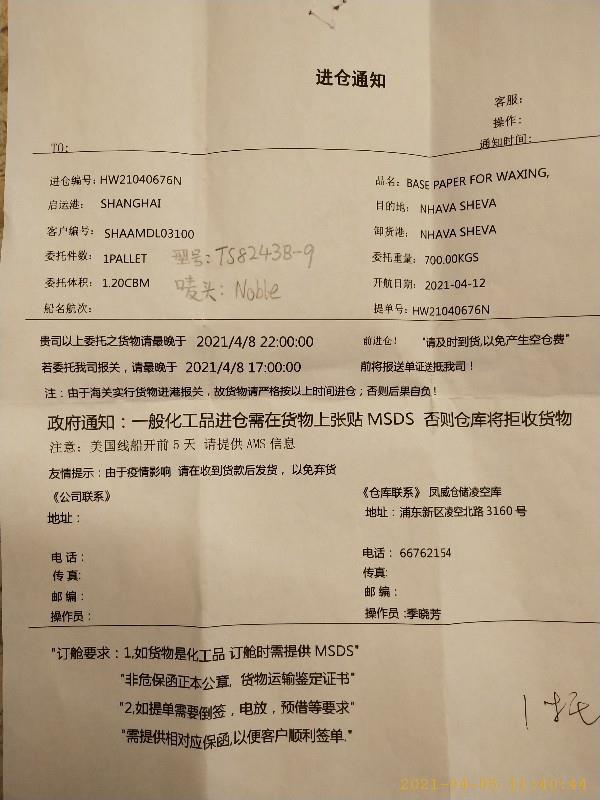 进仓通知
客服：
操作：
TO: 通知时间：
进仓编号：HW21040676N 品名：BASE PAPER FOR WAXING,
启运港： SHANGHAI 目的地： NHAVA SHEVA
客户编号： SHAAMDL03100 卸货港： NHAVA SHEVA
委托件数： 1PALLET 型号：TS8243B-9 委托重量： 700.00KGS
委托体积： 1.20CBM 唛头：Noble 开航日期： 2021-04-12
船名航次： 提单号：HW21040676N
贵司以上委托之货物请最晚于 2021/4/8 22:00:00 前进仓！ "请及时到货,以免产生空仓费"
若委托我司报关，请最晚于 2021/4/8 17:00:00 前将报送单证送抵我司！
注：由于海关实行货物进港报关，故货物请严格按以上时间进仓；否则后果自负！
政府通知：一般化工品进仓需在货物上张贴 MSDS 否则仓库将拒收货物
注意：美国线船开前 5 天 请提供 AMS 信息
友情提示：由于疫情影响 请在收到货款后发货， 以免弃货
《公司联系》 《仓库联系》 凤威仓储凌空库
地址： 地址：浦东新区凌空北路 3160 号
电话： 电话： 66762154
传真: 传真:
邮编： 邮编：
操作员： 操作员 :季晓芳
"订舱要求：1,如货物是化工品 订舱时需提供 MSDS"
"非危保函正本公章，货物运输鉴定证书"
"2,如提单需要倒签，电放，预借等要求"
"需提供相对应保函,以便客户顺利签单."
1托